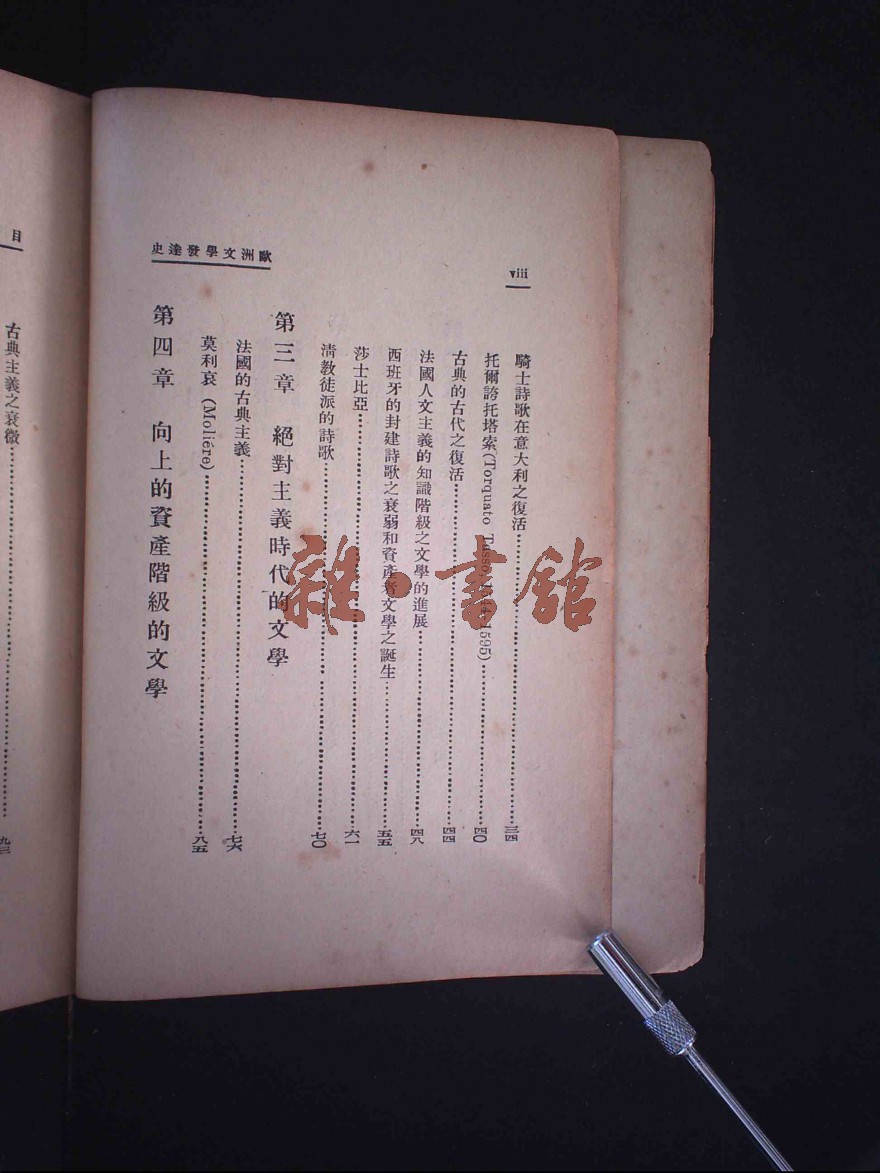 viii
歐洲文學發達史
騎士詩歌在意大利之復活……三四
托爾誇托塔索(Torquato Tasso 1544-1595)……四〇
古典的古代之復活……四四
法國人文主義的知識階級之文學的進展……四八
西班牙的封建詩歌之衰弱和資產者文學之誕生……五五
莎士比亞……六一
清教徒派的詩歌……七〇
第三章 絕對主義時代的文學
法國的古典主義……七六
莫利哀 (Moliére)……八五
第四章 向上的資產階級的文學
目
古典主義之衰微……九三
雜·書館